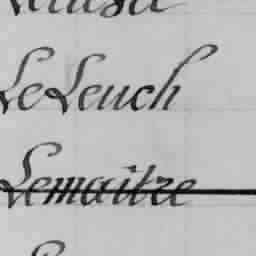 LeLeuch
Lemaitre